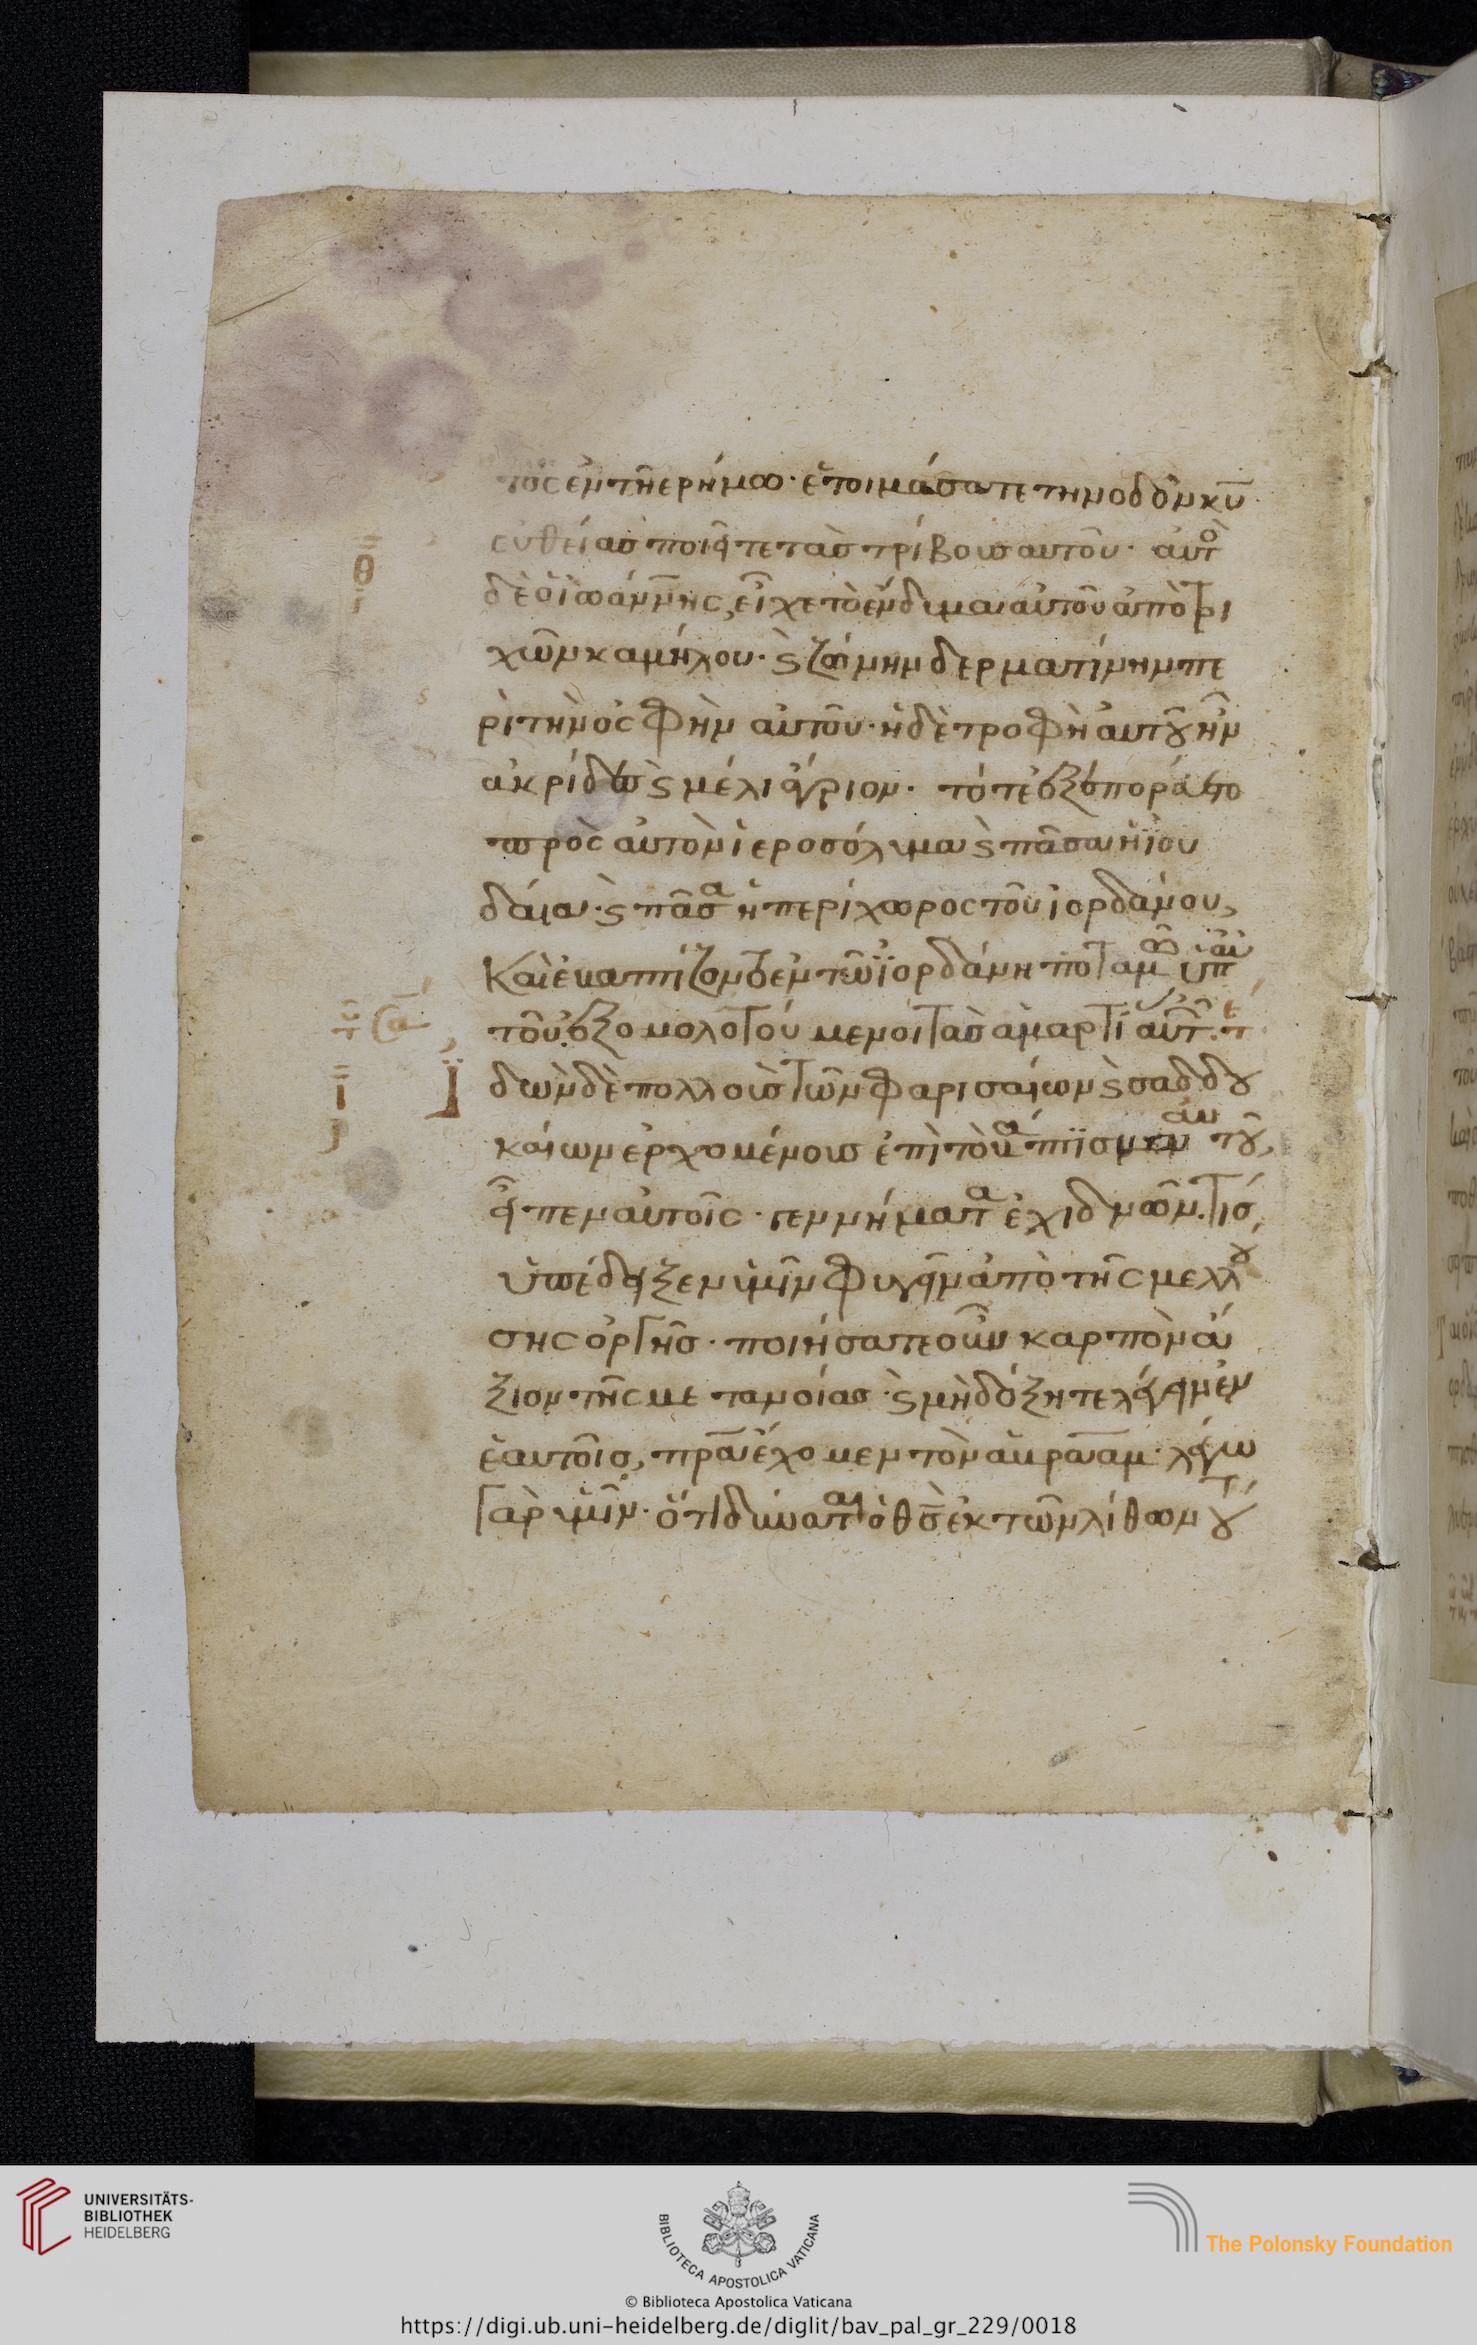 τος ἐν τῆ ερήμω· ἑτοιμάσατε τὴν οδὸν κυ
ευθείας ποιεῖτε τὰς τρίβους αυτοῦ· αὐτὸ
δὲ ὁ ἰωάννης, εἶχε τὸ ἔνδυμα αὐτοῦ ἀπὸ τρι
χῶν καμήλου· ϛ ζώνην δερματίνην πε
ρὶ τὴν ὀσφὴν αὐτοῦ· ἡ δὲ τροφὴ αυτοῦ ἦν
ἀκρίδες ϛ μέλι ἄγριον· τότε ἐξεπορεύετο
πρὸς αὐτὸν ἱεροσόλυμα ϛ πᾶσα ἡ ἰου
δαία· ϛ πᾶσα ἡ περίχωρος τοῦ ἰορδάνου,
Καὶ ἐβαπτίζοντο ἐν τῶ ἰορδάνη ποταμῶ ὑπ αὐ
τοῦ ἐξομολογούμενοι τὰς ἁμαρτί αὐτ.
θ
ι
ἰδὼν δὲ πολλοὺς τῶν φαρισαίων ϛ σαδδου
καίων ερχομένους ἐπὶ τὸ βάπτισμα αὐτοῦ,
εἶπεν αὐτοῖς· γεννήματα ἐχιδνῶν. τίς
ὑπέδειξεν ὑμῖν φυγεῖν ἀπὸ τῆς μελλου
σης ὀργῆς· ποιήσατε οὖν καρπὸν ἄ
ξιον τῆς μετανοίας· ϛ μὴ δόξητε λέγειν ἐν
ἑαυτοῖς, πρα ἔχομεν τὸν ἀβραὰμ· λέγω
γὰρ ὑμῖν· ὅτι δύναται ὁ θς ἐκ τῶν λίθων τού
UNIVERSITÄTS-
BIBLIOTHEK
HEIDELBERG
BIBLIOTECA APOSTOLICA VATICANA
The Polonsky Foundation
© Biblioteca Apostolica Vaticana
https://digi.ub.uni-heidelberg.de/diglit/bav_pal_gr_229/0018